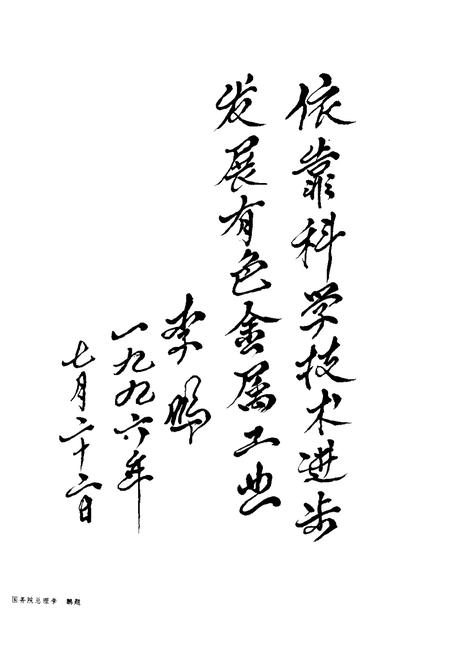 依靠科学技术进步
发展有色金属工业
李鹏
一九九六年
七月二十六日
国务院总理李 鹏题